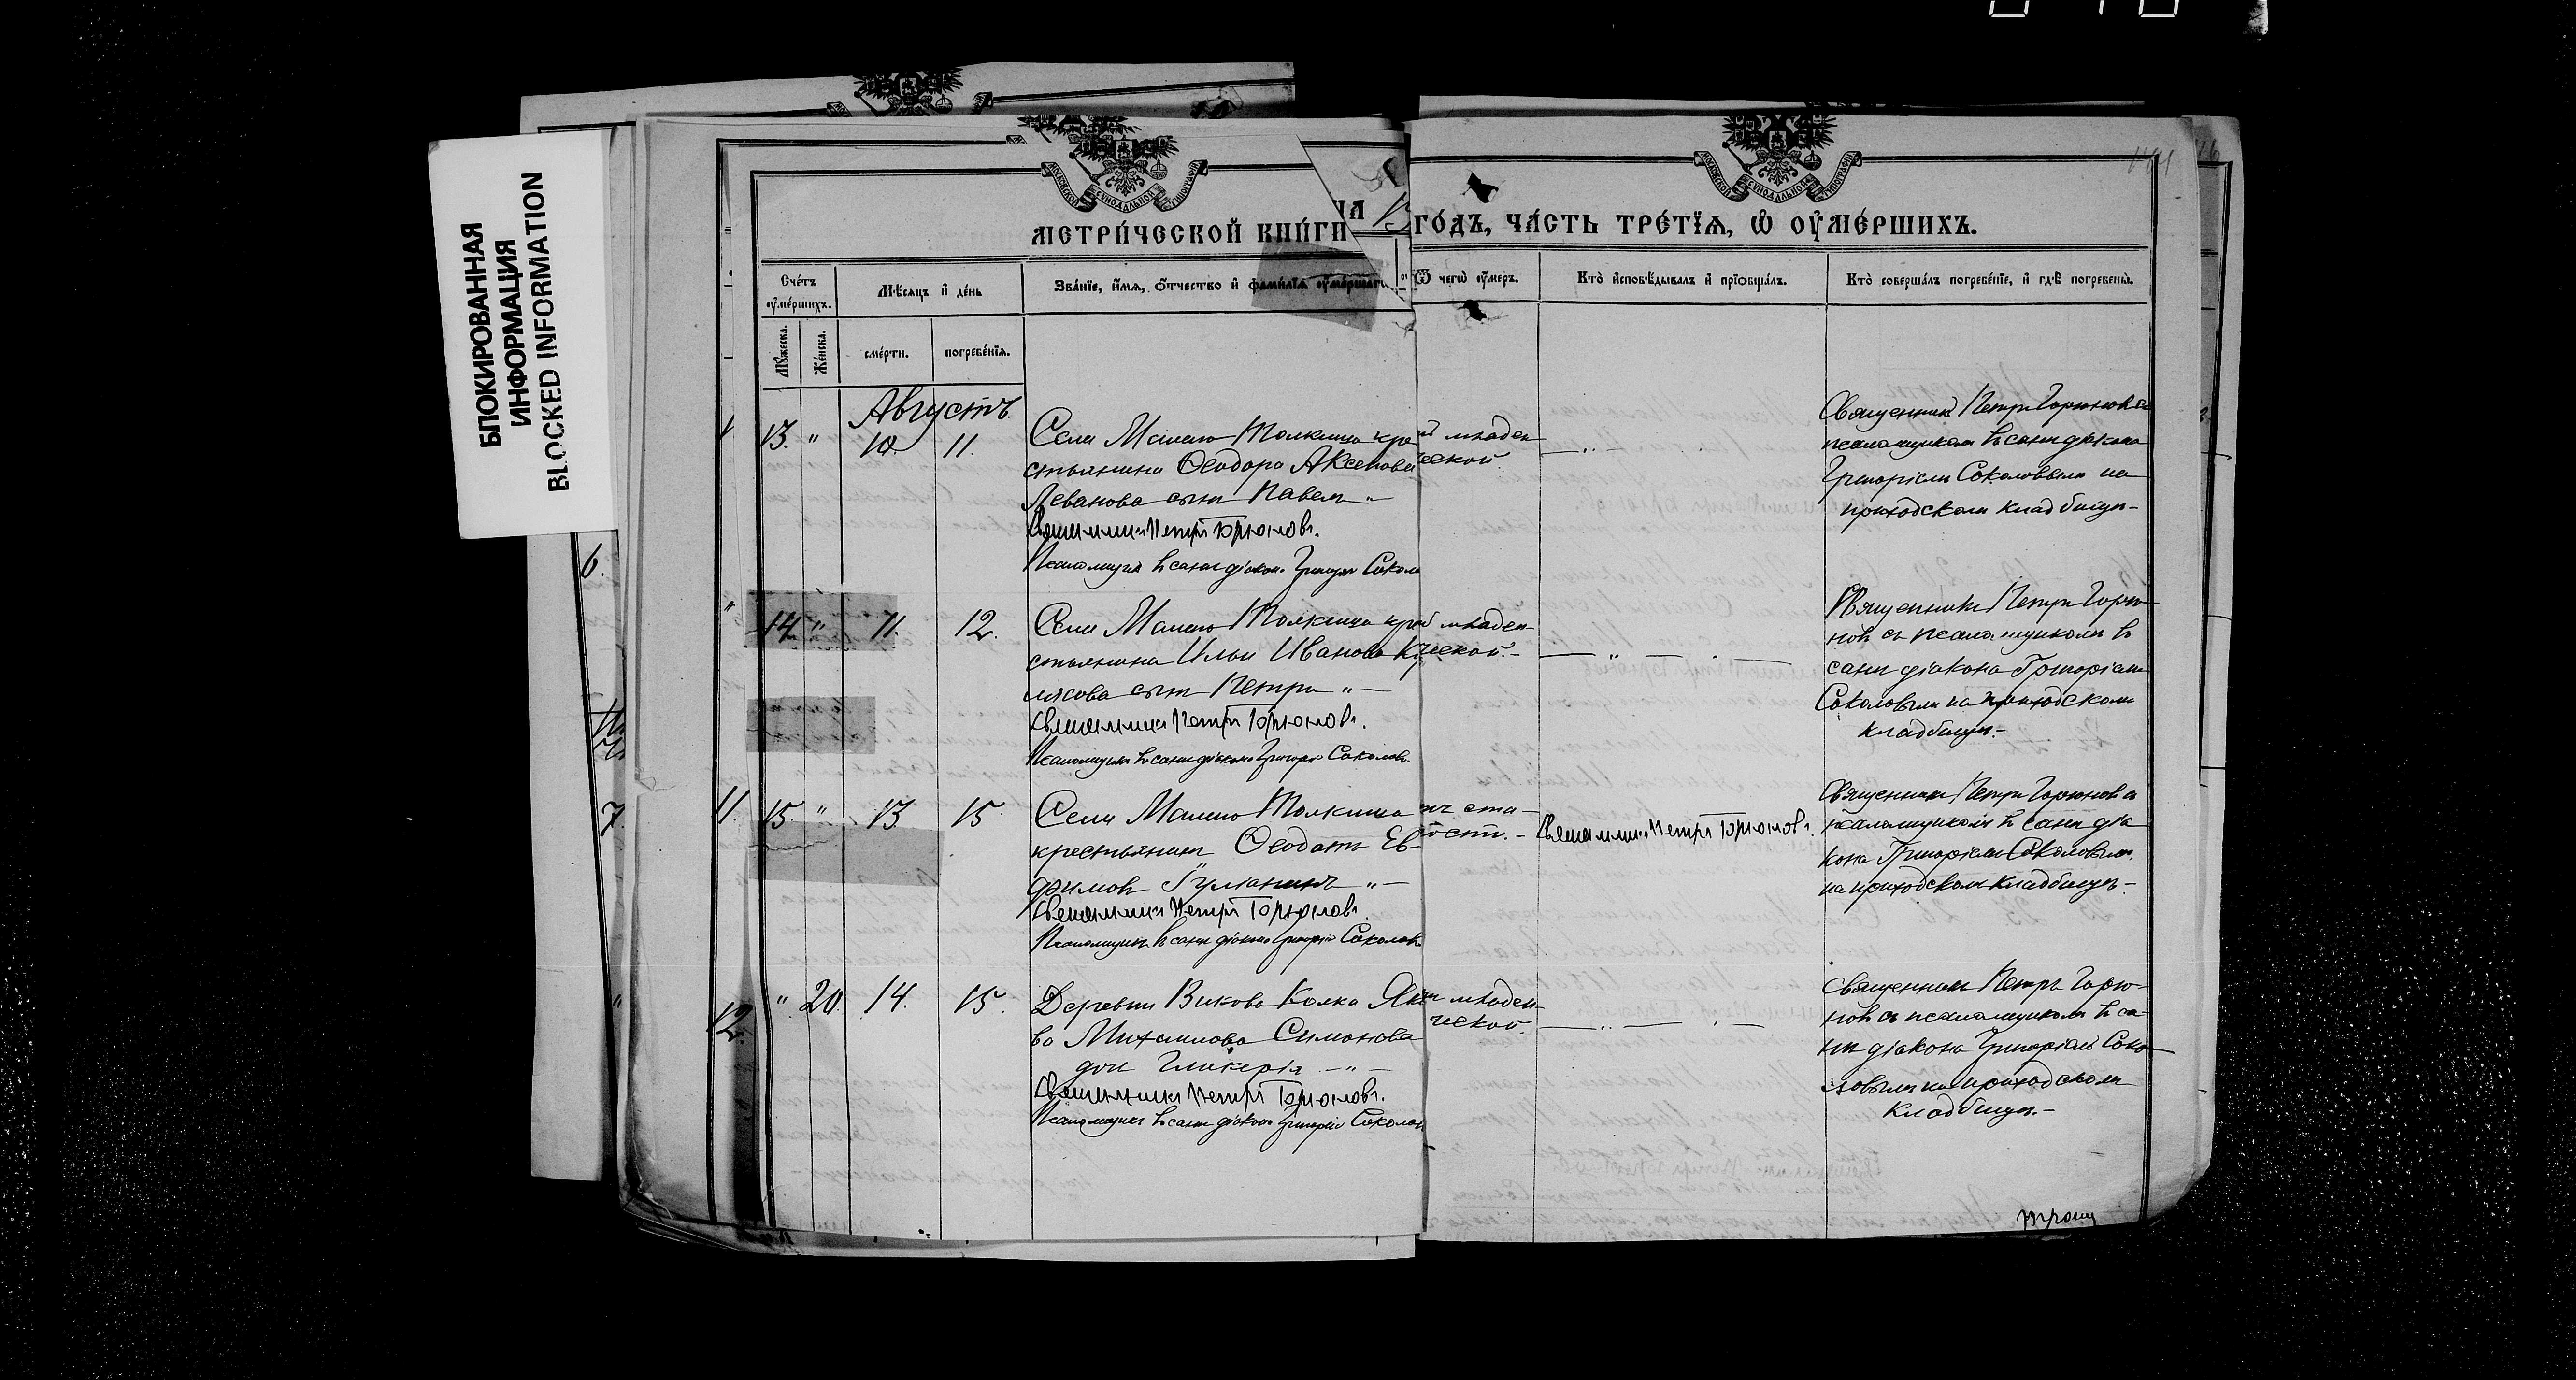 БЛОКИРОВАННАЯ
ИНФОРМАЦИЯ
BLOCKED INFORMATION
МОСКОВСКОЙ СѴНОДАЛЬНОЙ ТИПОГРАФІИ
МОСКОВСКОЙ СѴНОДАЛЬНОЙ ТИПОГРАФІИ
МЕТРИ́ЧЕСКОЙ КНИ́ГИ
ГО́ДЪ, ЧА́СТЬ ТРЕ́ТЇѦ, Ѡ҆ ОУ҆МЕ́РШИХЪ.
Сче́тъ оу҆ме́ршихъ.
Мѣ́сѧцъ и҆ де́нь
Зва́нїе, и҆́мѧ, ѻ҆́тчество и҆ фами́лїѧ оу҆ме́ршагѡ
Ѿ чегѡ̀ оу҆́меръ.
Кто̀ и҆сповѣ́дывалъ и҆ прїобща́лъ.
Кто̀ соверша́лъ погребе́нїе, и҆ гдѣ̀ погребены̀.
Мꙋ́жеска.
Же́нска.
сме́рти.
погребе́нїѧ.
Августъ
13. " 10 11.
Села Малаго Толкиша кре
стьянина Ѳеодора Аксенова
Леванова сынъ Павелъ "—
Священникъ Петръ Горюновъ.
Псаломщикъ въ санѣ діакона Григорій Соколо
младен
ческой
Священникъ Петръ Горюновъ съ
псаломщикомъ въ санѣ діакона
Григоріемъ Соколовымъ на
приходскомъ кладбищѣ-
14 " 11. 12.
Села Малаго Толкиша кре
стьянина Ильи Иванова
сынъ Петръ "—
Священникъ Петръ Горюновъ.
Псаломщикъ въ санѣ діакона Григорій Соколовъ.
младен-
ческой.-
Священникъ Петръ Горю-
новъ съ псаломщикомъ въ
санѣ діакона Григоріемъ
Соколовымъ на приходскомъ
кладбищѣ.-
15. " 13. 15.
Села Малаго Толкиша
крестьянинъ Ѳеодотъ Ев-
фимовъ "—
Священникъ Петръ Горюновъ.
Псаломщикъ въ санѣ діакона Григорій Соколовъ
ста-
рости.-
Священникъ Петръ Горюновъ.
Священникъ Петръ Горюновъ съ
псаломщикомъ въ санѣ діа
кона Григоріемъ Соколовымъ
на приходскомъ кладбищѣ-
" 20. 14. 15.
Деревни Бикова Колка Яко
ва Михаилова Симонова
дочь Гликерія —"—
Священникъ Петръ Горюновъ.
Псаломщикъ въ санѣ діакона Григорій Соколов
младен-
ческой.
Священникъ Петръ Горю-
новъ съ псаломщикомъ въ са-
нѣ діакона Григоріемъ Соко
ловымъ на приходскомъ
кладбищѣ.-
6.
7.
11.
12.